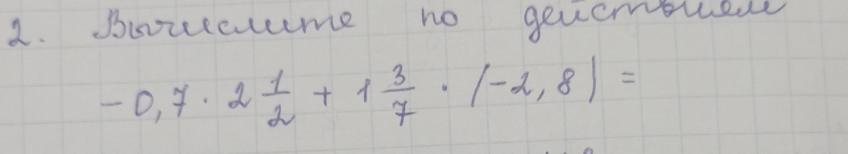 2. Вычислите по действиям
-0,7 · 2 1/2 + 1 3/7 · (-2,8) =